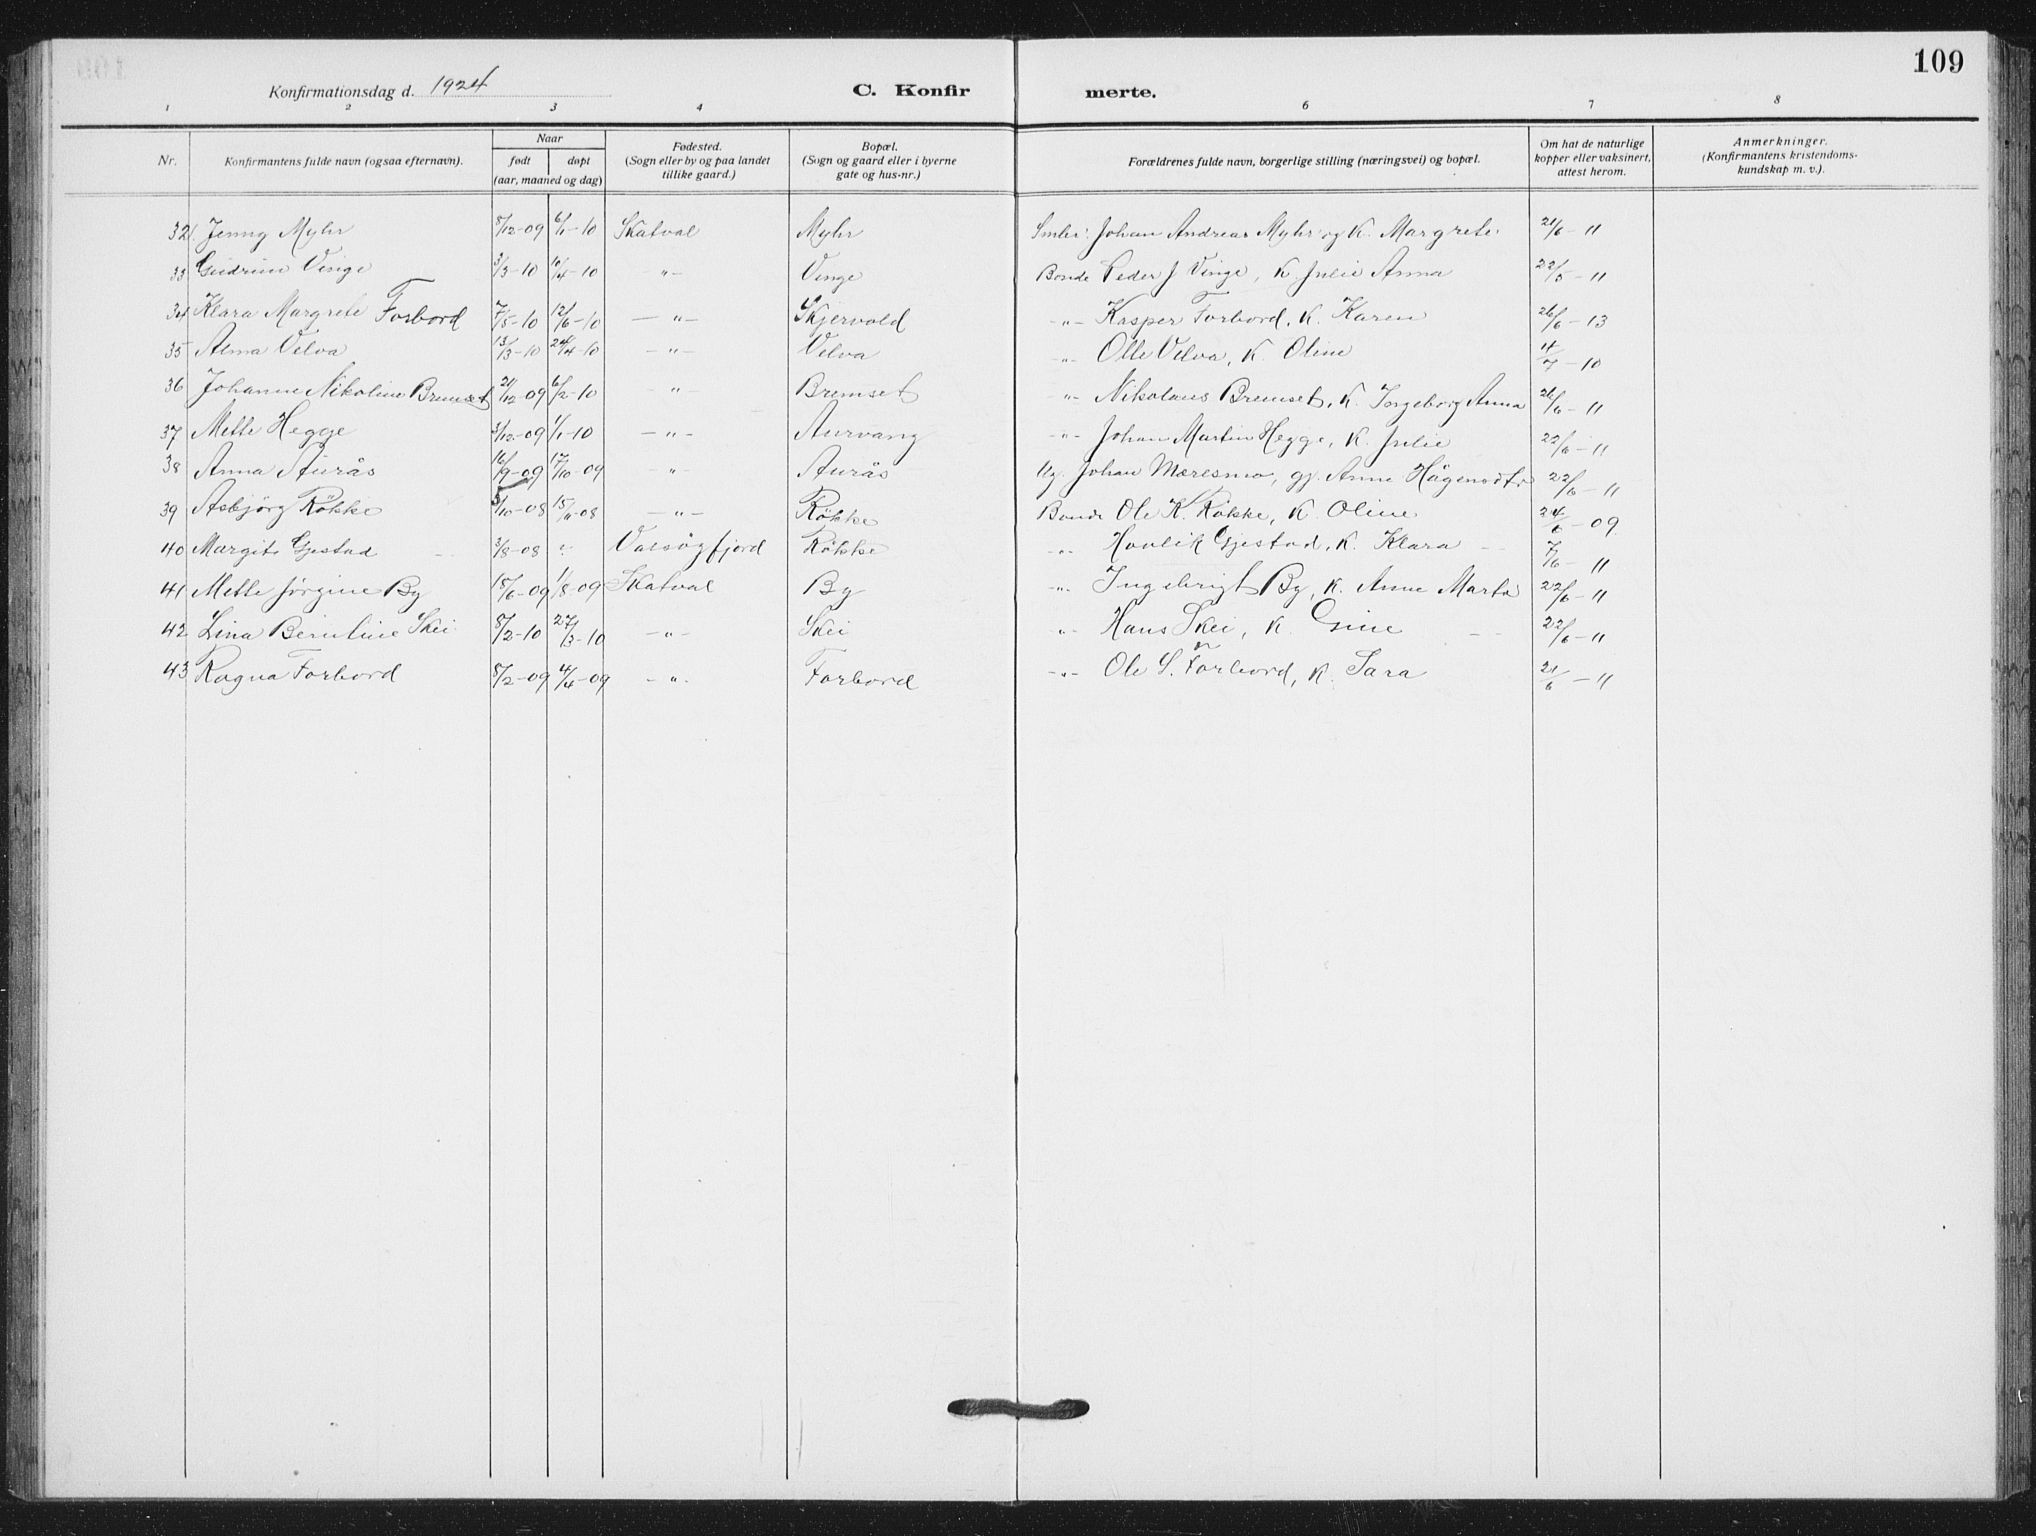 109
Konfirmationsdag d. 1924 C. Konfir merte.
1 2 3 4 6 7 8
Nr. Konfirmantens fulde navn (ogsaa efternavn). Naar født døpt (aar, maaned og dag) Fødested. (Sogn eller by og paa landet tillike gaard.) Bopæl. (Sogn og gaard eller i byerne gate og hus-nr.) Forældrenes fulde navn, borgerlige stilling (næringsvei) og bopæl. Om hat de naturlige kopper eller vaksinert, attest herom. Anmerkninger. (Konfirmantens kristendoms-kundskap m. v.).
32 Jenny Myhr 8/12-09 6/1-10 Skatval Myhr Smbr. Johan Andreas Myhr og K. Margrete 21/6 - "
33 Gudrun Vinge 3/3-10 10/4-10 -"- Vinge Bonde Peder J Vinge, K. Julie Anna 22/5 - "
34 Klara Margrete Forbord 7/5-10 12/6-10 -"- Skjervold -"- Kasper Forbord, K. Karen 26/6 - 13
35 Alma Velva 13/3-10 24/4-10 -"- Velva -"- Olle Velva, K. Oline 11/7 - 10
36 Johanne Nikoline Bremset 21/12-09 6/2-10 " Bremset -"- Nikolaus Bremset, K. Ingeborg Anna 26/6 - "
37 Mette Hegge 3/12-09 1/1-10 -"- Aurvang -"- Johan Martin Hegge, K. Julie 22/6 - "
38 Anna Aurås 16/9-09 17/10-09 " Aurås Ug. Johan Mæresmo, gj. Anne Hågensdtr 22/6 - "
39 Asbjørg Røkke 5/10-08 15/11-08 -"- Røkke Bonde Ole K. Røkke, K. Oline 24/6 - 09
40 Margit Gjestad 3/8-08 " Valsøyfjord Røkke -"- Havlik Gjestad, K. Klara 7/6 - "
41 Mette Jørgine By 15/6-09 1/8-09 Skatval By -"- Ingebrigt By, K. Anne Marta 22/6 - "
42 Lina Berntine Skei 8/2-10 27/3-10 -"- Skei " Hans Skei, K. Gine 22/6 - "
43 Ragna Forbord 8/2-09 4/4-09 -"- Forbord -"- Ole S. Forbord, K. Sara 21/6 - "